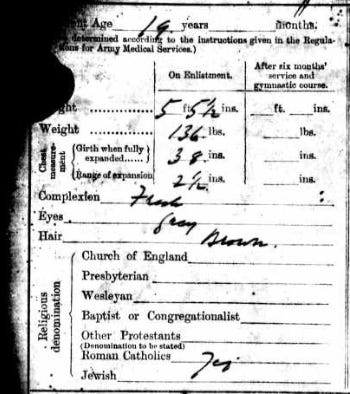 nt Age 19 years months.
determined according to the instructions given in the Regula-
ions for Army Medical Services.)
On Enlistment.
After six months' service and gymnastic course.
ght 5 ft. 5½ ins. ft. ins.
Weight 136 lbs. lbs.
Chest measure-ment
Girth when fully expanded...... 38 ins. ins.
Range of expansion 2½ ins. ins.
Complexion Fresh
Eyes Gray
Hair Brown.
Religious denomination
Church of England
Presbyterian
Wesleyan
Baptist or Congregationalist
Other Protestants
(Denomination to be stated)
Roman Catholics
Jewish